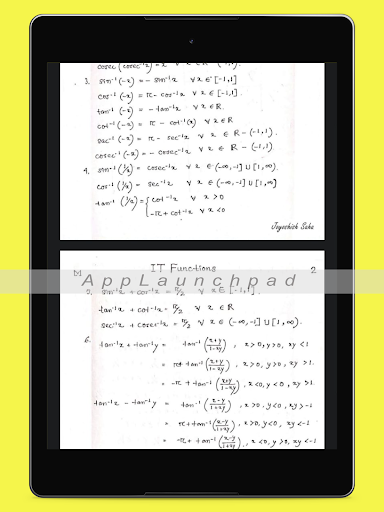 cosec (cosec⁻¹x) = x ∀ x ∈ R - (-1,1).
3. sin⁻¹(-x) = - sin⁻¹x ∀ x ∈ [-1,1]
cos⁻¹(-x) = π - cos⁻¹x ∀ x ∈ [-1,1].
tan⁻¹(-x) = - tan⁻¹x ∀ x ∈ R.
cot⁻¹(-x) = π - cot⁻¹(x) ∀ x ∈ R
sec⁻¹(-x) = π - sec⁻¹x ∀ x ∈ R - (-1,1).
cosec⁻¹(-x) = - cosec⁻¹x ∀ x ∈ R - (-1,1)
4. sin⁻¹(1/x) = cosec⁻¹x ∀ x ∈ (-∞,-1] ∪ [1,∞).
cos⁻¹(1/x) = sec⁻¹x ∀ x ∈ (-∞,-1] ∪ [1,∞)
tan⁻¹(1/x) = { cot⁻¹x ∀ x > 0
-π + cot⁻¹x ∀ x < 0
Joyoshish Saha
IT Functions 2
AppLaunchpad
5. sin⁻¹x + cos⁻¹x = π/2 ∀ x ∈ [-1,1].
tan⁻¹x + cot⁻¹x = π/2 ∀ x ∈ R
sec⁻¹x + cosec⁻¹x = π/2 ∀ x ∈ (-∞,-1] ∪ [1,∞).
6. tan⁻¹x + tan⁻¹y = tan⁻¹((x+y)/(1-xy)), x>0, y>0, xy<1
= π + tan⁻¹((x+y)/(1-xy)), x>0, y>0, xy>1.
= -π + tan⁻¹((x+y)/(1-xy)), x<0, y<0, xy>1.
tan⁻¹x - tan⁻¹y = tan⁻¹((x-y)/(1+xy)), x>0, y<0, xy>-1
= π + tan⁻¹((x-y)/(1+xy)), x>0, y<0, xy<-1
= -π + tan⁻¹((x-y)/(1+xy)), x<0, y>0, xy<-1